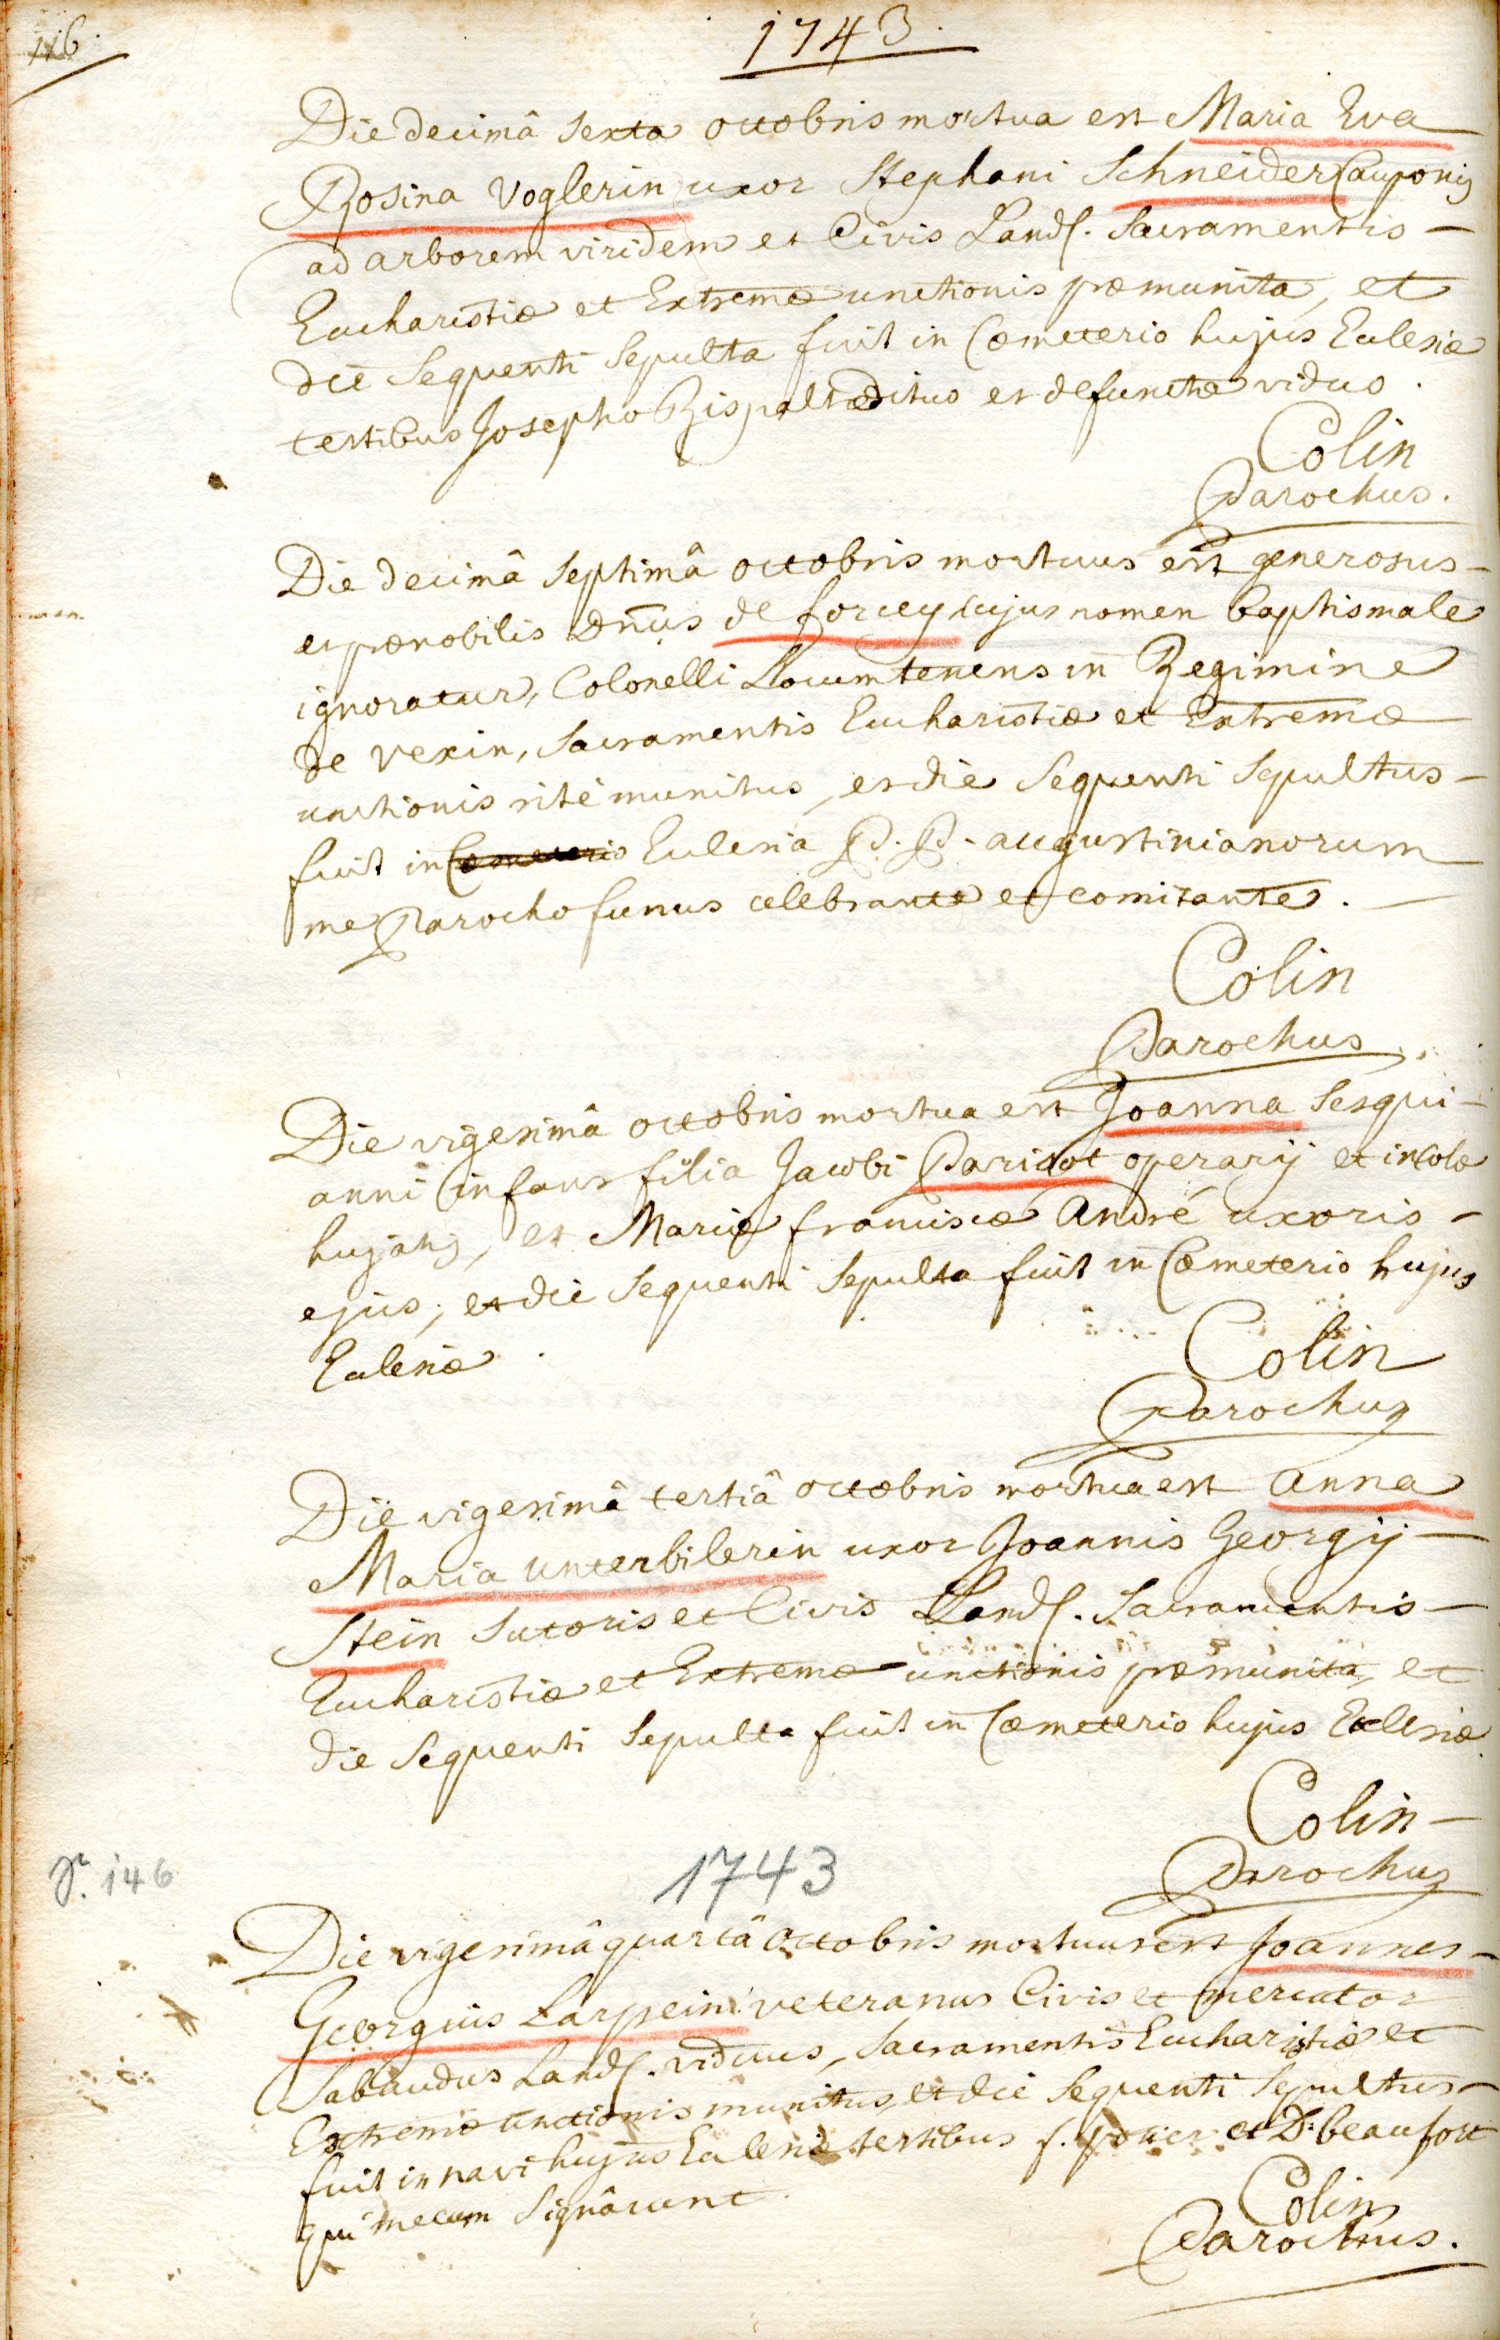 116.
1743.
Die decimâ sexta octobris mortua est Maria Eva
Rosina Voglerin uxor Stephani Schneider Cauponis
ad arborem viridem et Civis Land. Sacramentis
Eucharistiæ et Extremæ unctionis præmunita, et
die sequenti sepulta fuit in Cœmeterio hujus Eclesiæ
testibus Josepho Rispalt ædituo et defunctæ viduo.
Colin
Parochus.
Die decimâ septimâ octobris mortuus est generosus
et prænobilis Dnus de forcey cujus nomen baptismale
ignoratur, Colonelli Locumtenens in Regimine
de vexin, sacramentis Eucharistiæ et Extremæ
unctionis rité munitus, et die sequenti sepultus
fuit in Cœmeterio Eclesia P. P. augustinianorum
me Parocho funus celebrante et comitante.
Colin
Parochus.
Die vigesimâ octobris mortua est Joanna sesqui-
anni infans filia Jacobi Parisot operarij et incolæ
hujatis, et Mariæ franciscæ André uxoris
ejus, et die sequenti sepulta fuit in Cœmeterio hujus
Eclesiæ.
Colin
Parochus
Die vigesimâ tertiâ octobris mortua est anna
Maria unterbilerin uxor Joannis Georgij
Stein sutoris et Civis Land. Sacramentis
Eucharistiæ et Extremæ unctionis præmunita, et
die sequenti sepulta fuit in Cœmeterio hujus Eclesiæ
Colin
Parochus
146
1743
Die vigesimâ quartâ octobris mortuus est Joannes
Georgius Larpein veteranus Civis et mercator
Sabaudus Land. viduus, Sacramentis Eucharistiæ et
Extremæ unctionis munitus, et die sequenti sepultus
fuit in navi hujus Eclesiæ testibus f. et D: beaufort
qui mecum signârunt.
Colin
Parochus.